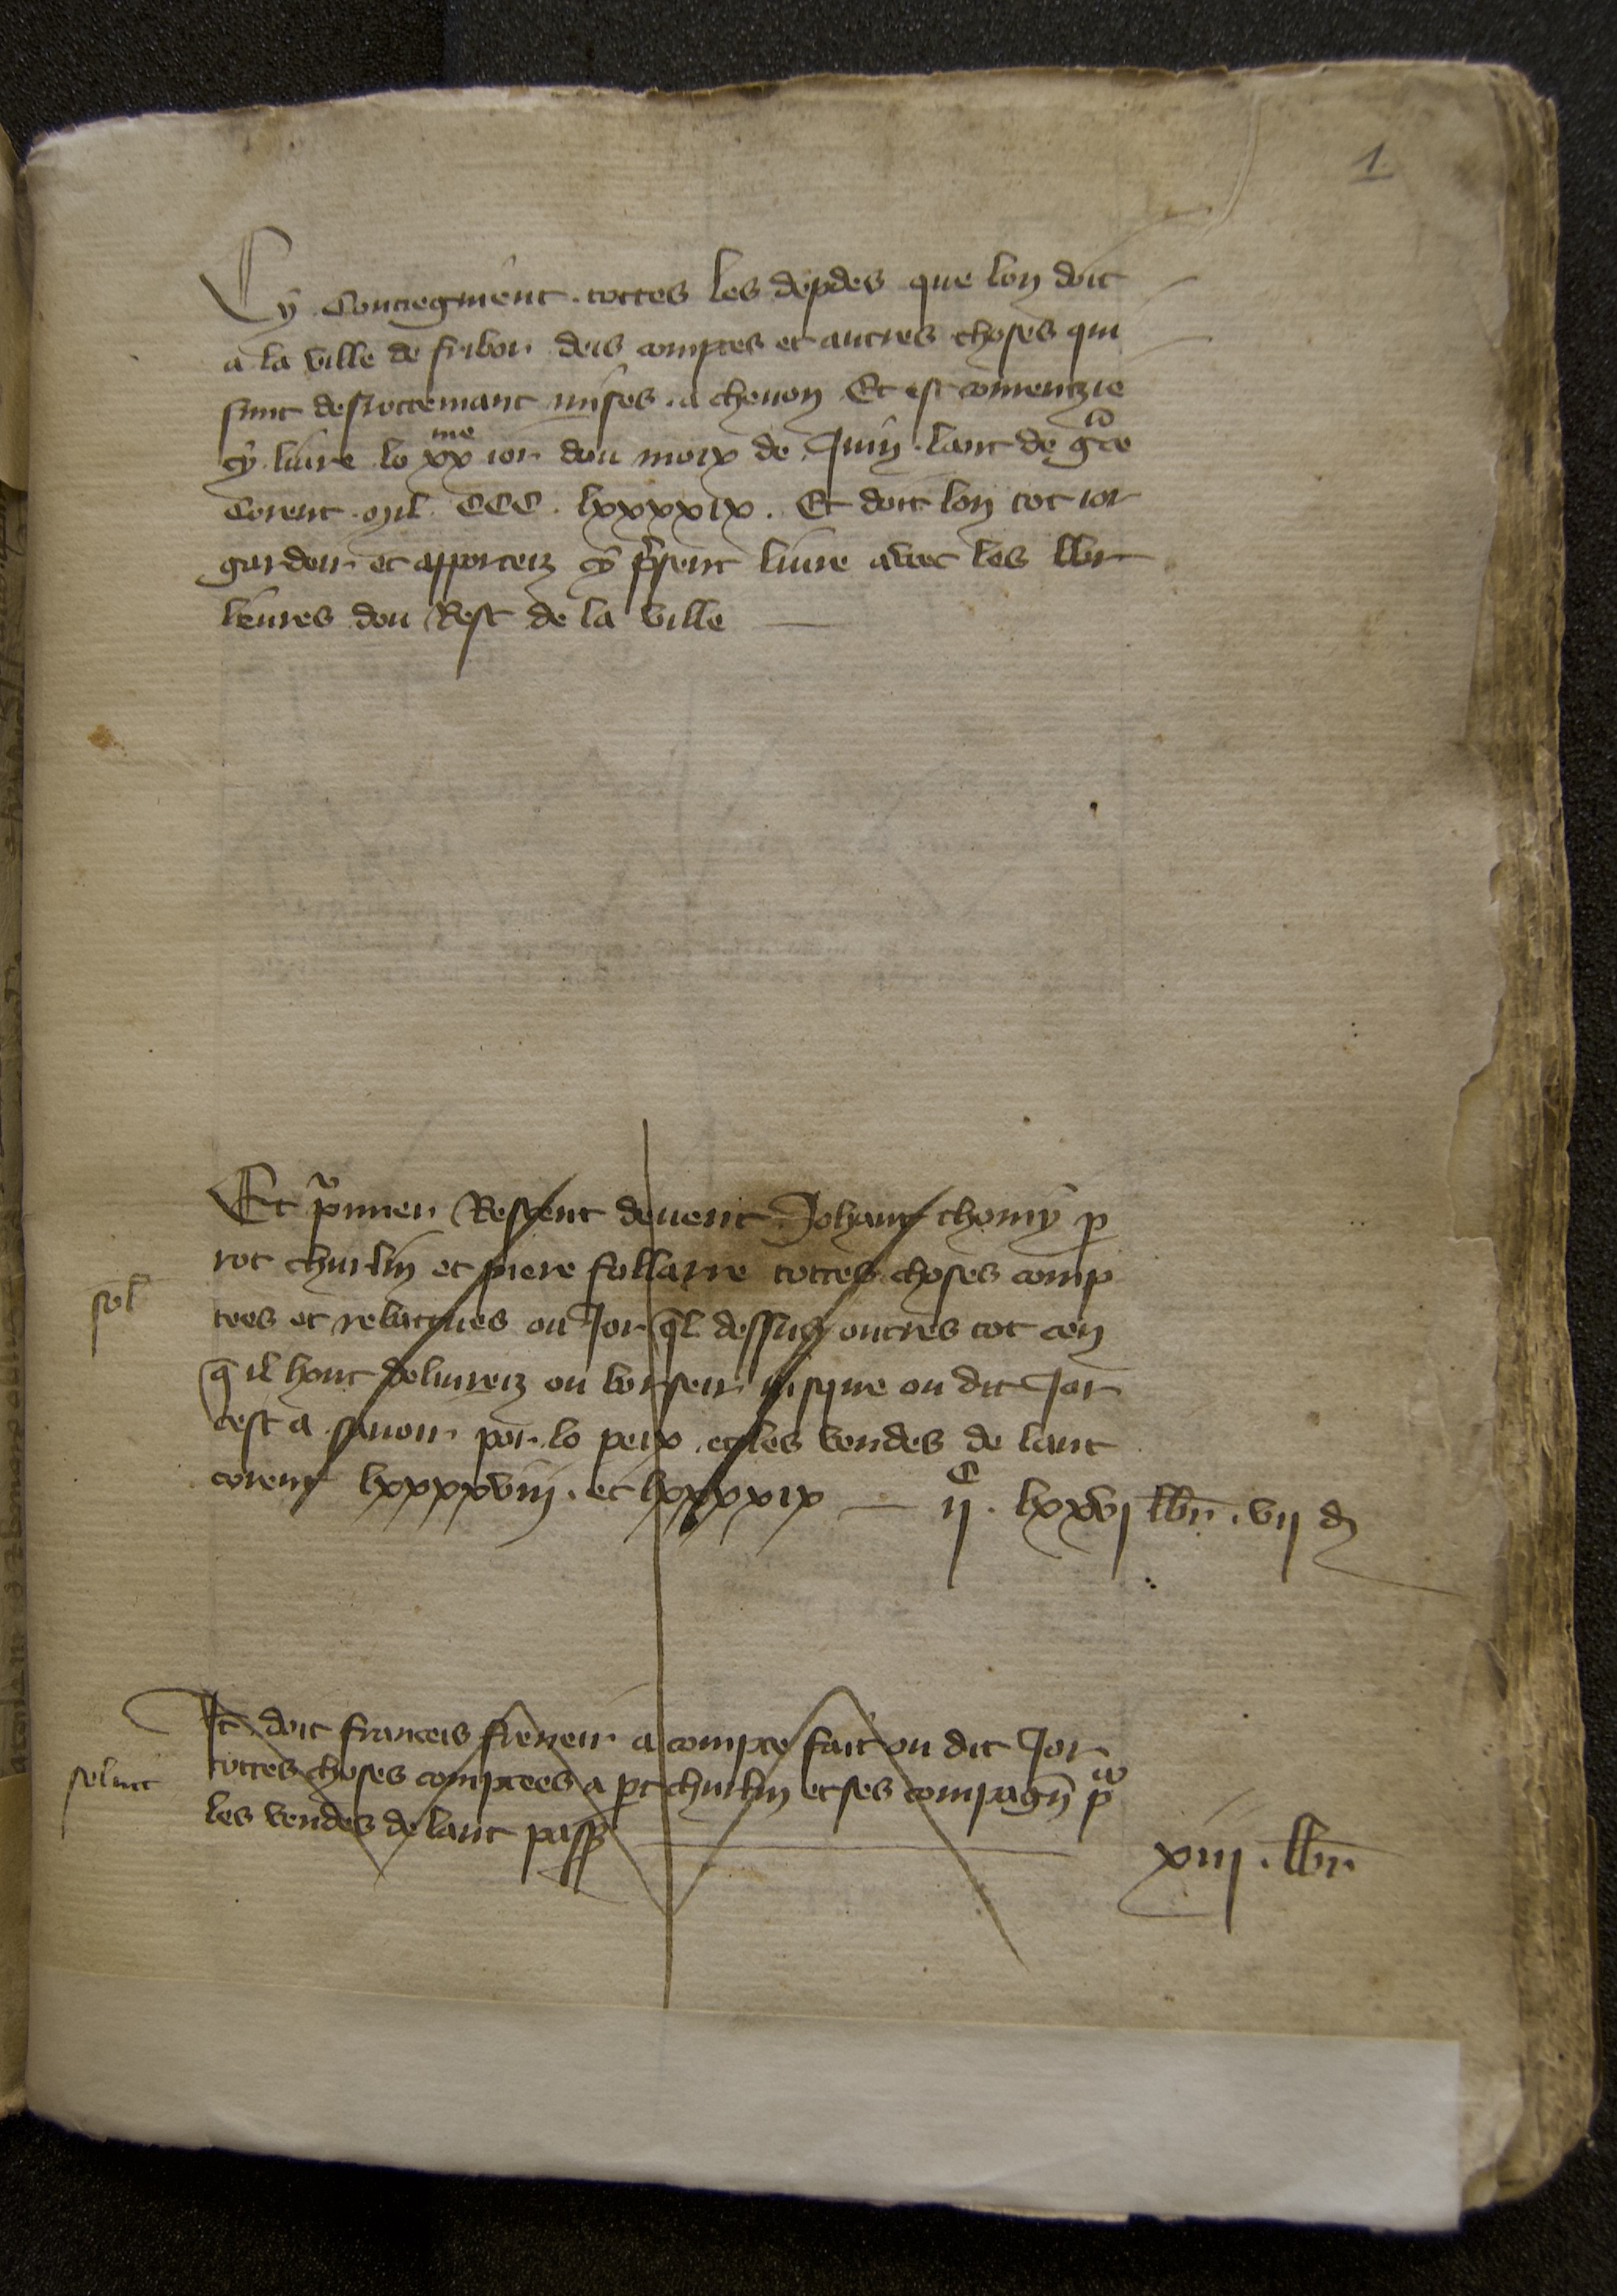 1
Cy Contiegnient. tottes les depdes que lon doit
a la ville de fribor deis comptes et autres choses qui
sunt desrottemant mises. a chevon Et est comentzie
cy livre lo xx me ior dou moix de Juin. lant de gce
Corent. mil. CCC. lxxxxix. Et doit lon tot ior
gardeir et apporteiz cy psent livre avec les lbr
livres dou Rest de la ville
Et pmier Restent devent Johant chomy p
rot churlin et piere follarre tottes choses comp
sol
tees et rebatues ou Jor ql dessus outres tot cen
q il hont delivreiz ou borseir iusque ou dit Jor
cest a savoir por lo peix et les vendes de lant
corent lxxxxviij. et lxxxxix ij C. lxxvj lbr. vij d
It doit franceis fieneir a compte fait ou dit Jor
soluit
tottes choses comptees a pt churlin et ses compagn p
les vendes de lant pass
xiij. lbr.